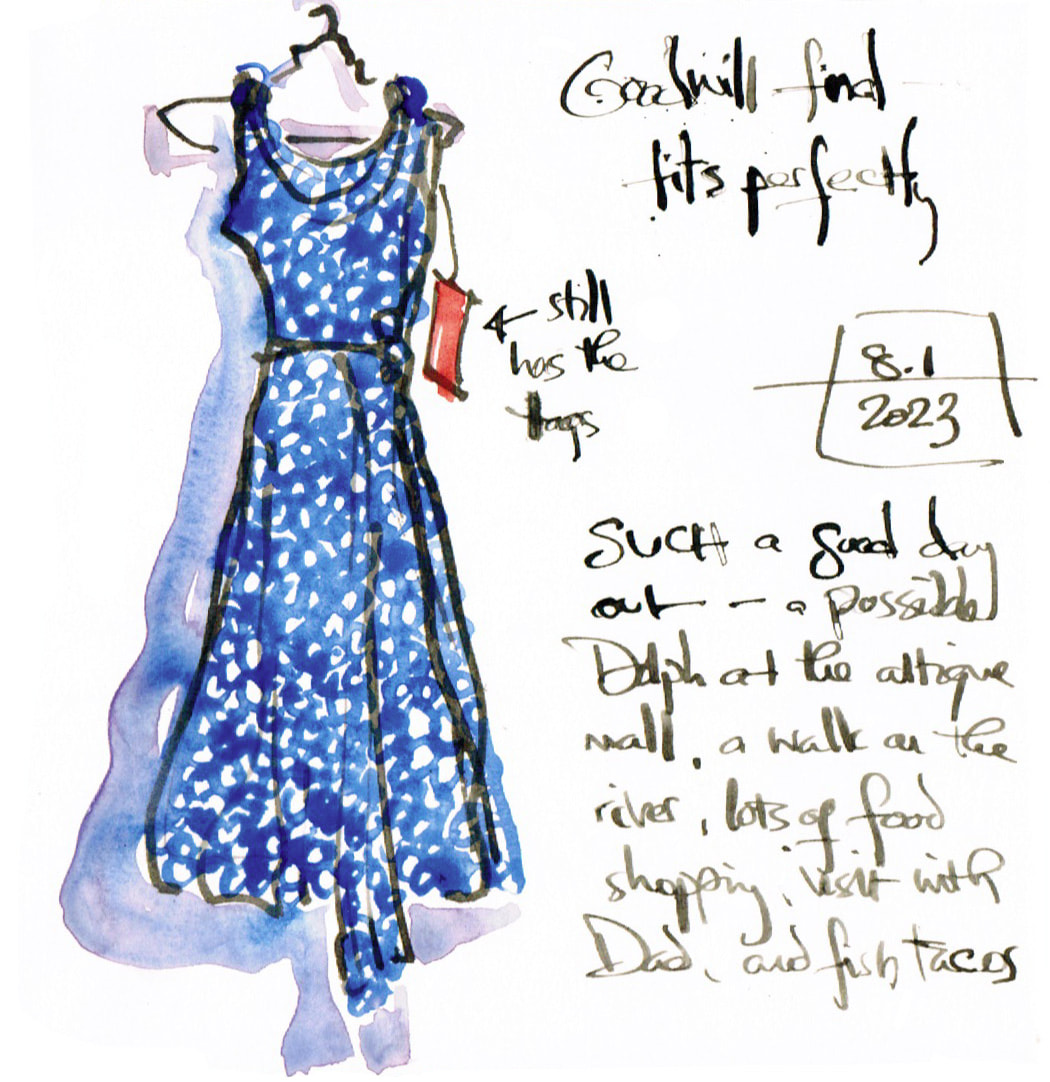 Goodwill find
fits perfectly
still
has the
tags
8.1
2023
SUCH a good day
out - a possible
Delph at the antique
mall, a walk on the
river, lots of food
shopping, visit with
Dad, and fish tacos